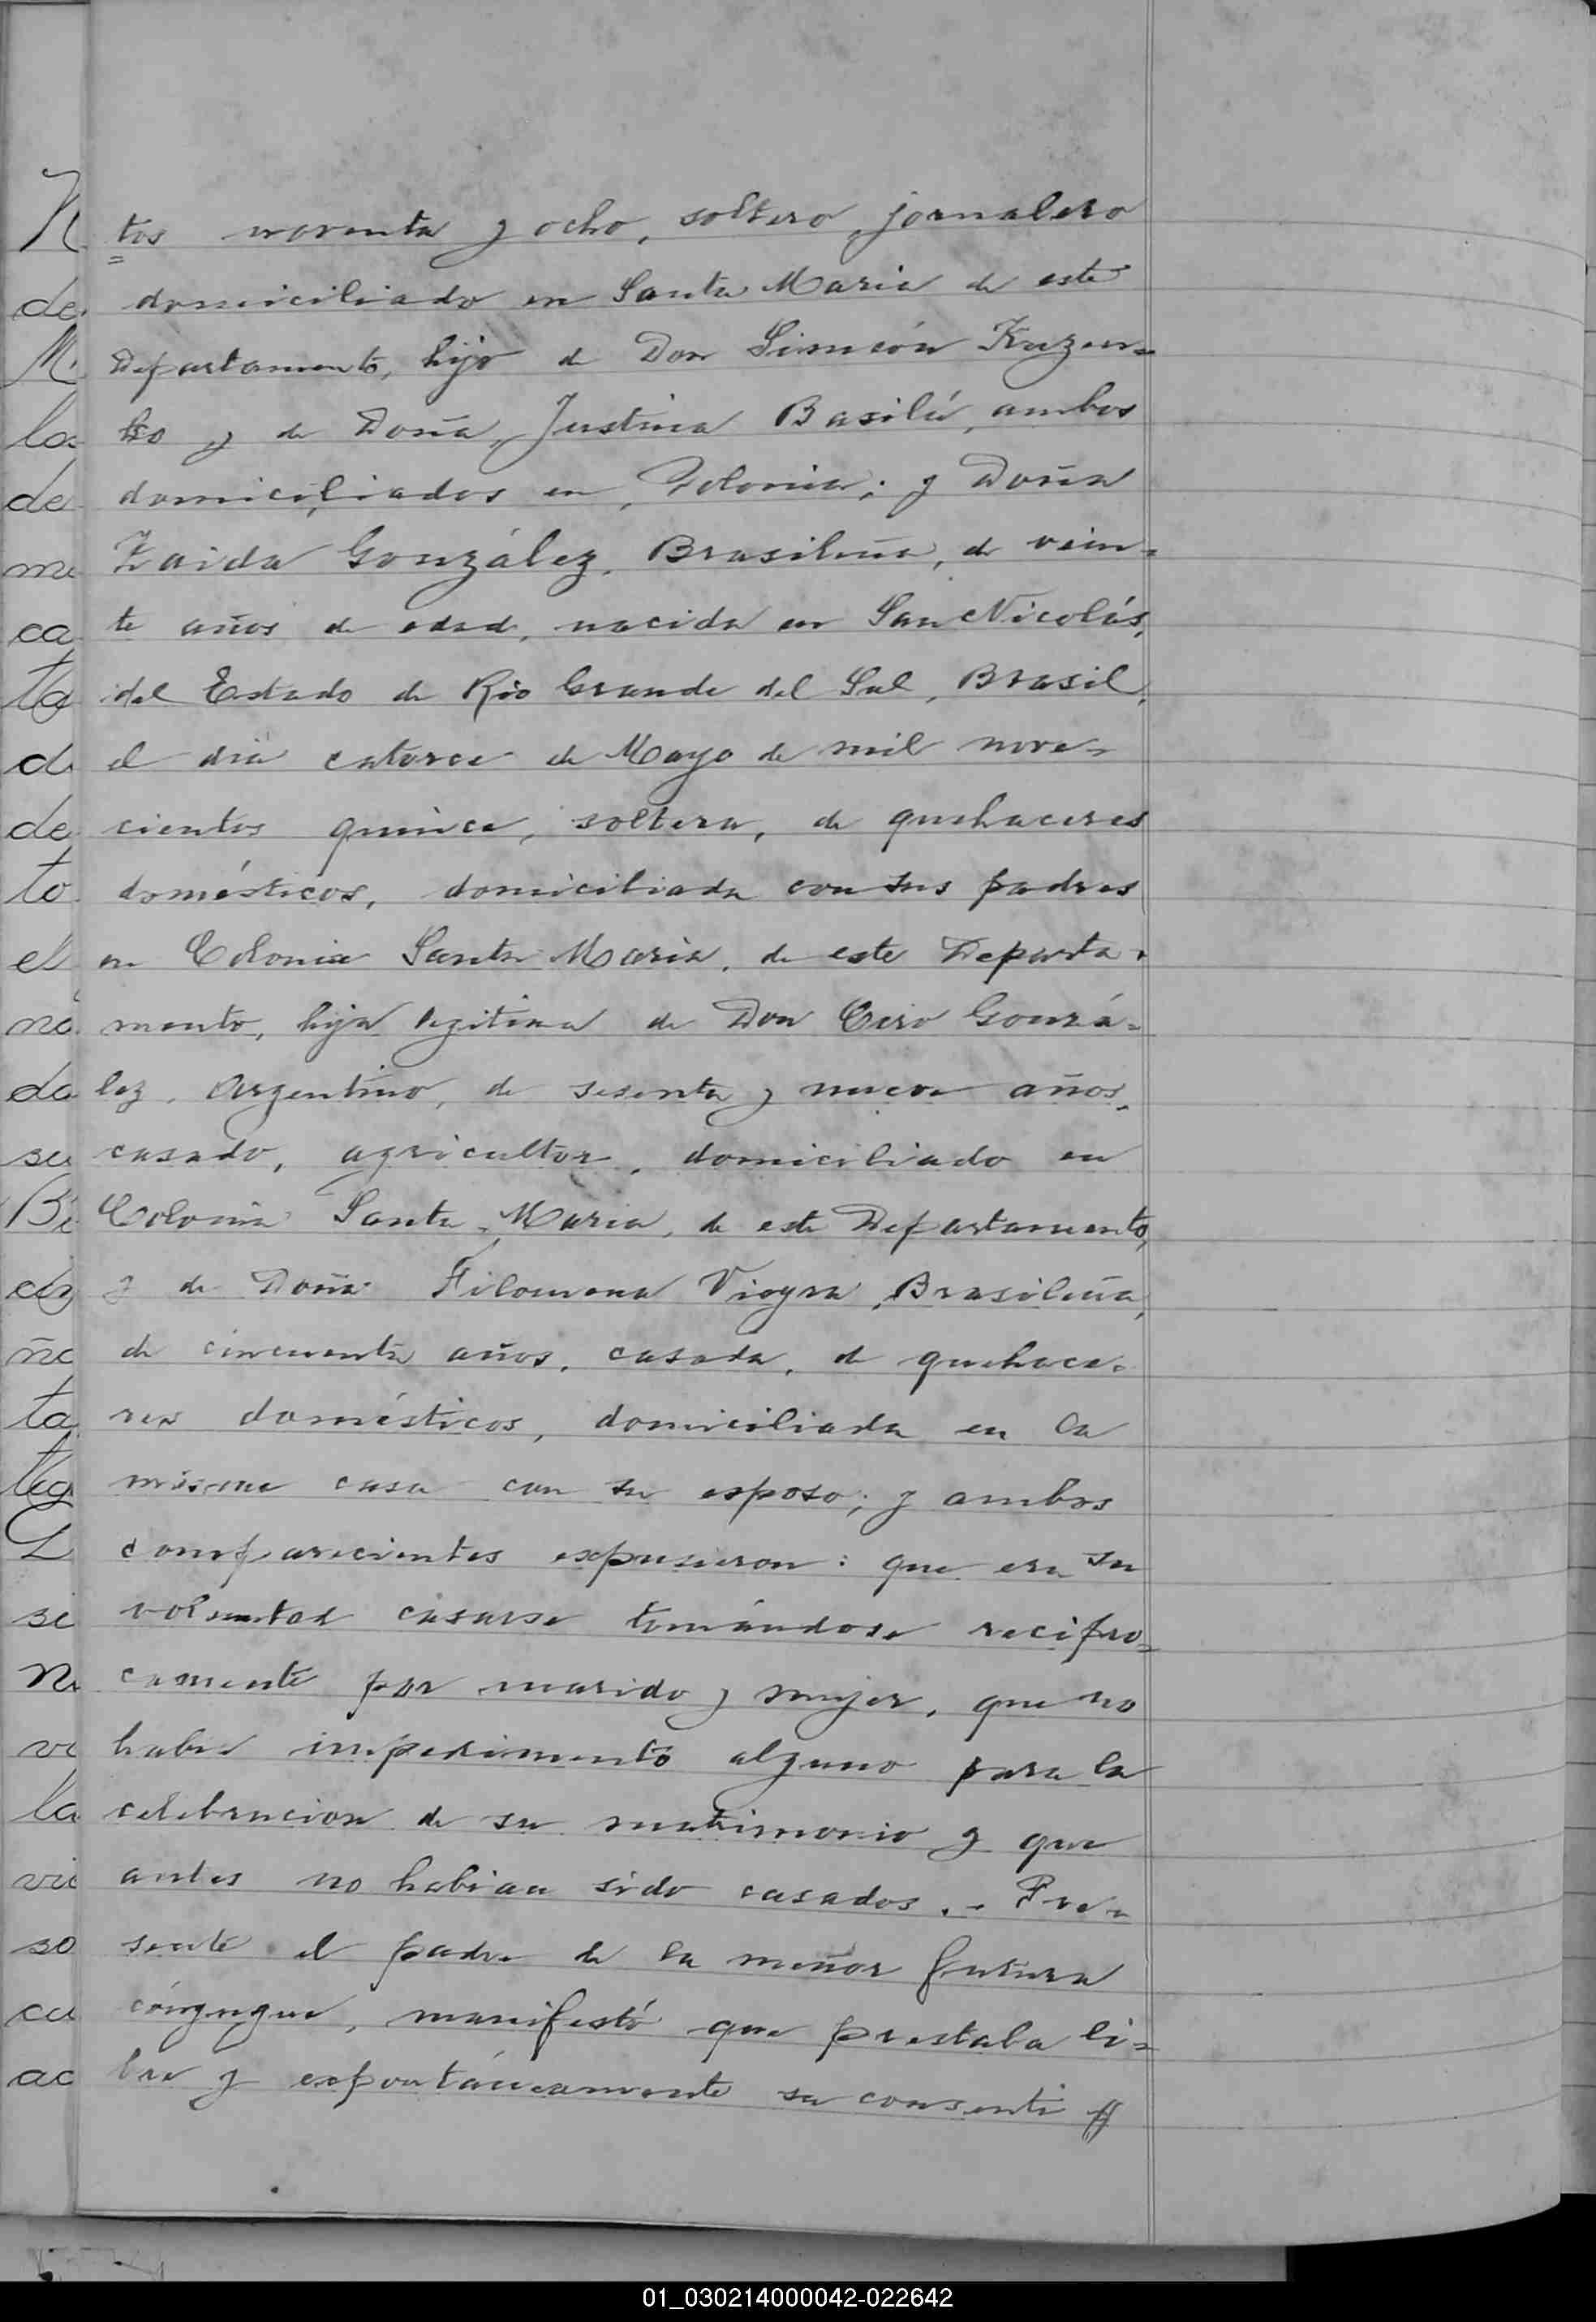 tos noventa y ocho, soltero, jornalero
domiciliado en Santa Maria de este
Departamento, hijo de Don Simeón Kuzen=
ko y de Doña Justina Basilú, ambos
domiciliados en Polonia; y Doña
Zaida González, Brasileña, de vein=
te años de edad, nacida en San Nicolás,
del Estado de Rio Grande del Sul, Brasil,
el dia catorce de Mayo de mil nove=
cientos quince, soltera, de quehaceres
domésticos, domiciliada con sus padres
en Colonia Santa Maria, de este Departa=
mento, hija legitima de Don Ciro Gonzá=
lez, Argentino, de sesenta y nueve años,
casado, agricultor, domiciliado en
Colonia Santa Maria, de este Departamento,
y de Doña Filomena Vieyra, Brasileña,
de cincuenta años, casada, de quehace=
res domésticos, domiciliada en la
misma casa con su esposo; y ambos
comparecientes expusieron: que era su
voluntad casarse tomándose recipro=
camente por marido y mujer, que no
habia impedimento alguno para la
celebracion de su matrimonio y que
antes no habian sido casados. - Pre=
sente el padre de la menor futura
cónyugue, manifestó que prestaba li=
bre y expontáneamente su consenti //
N
de
M
la
de
me
ca
ta
d
de
to
el
na
da
su
Bi
ci
ño
ta
teg
L
si
n
vi
la
vic
so
cu
ac
01_030214000042-022642